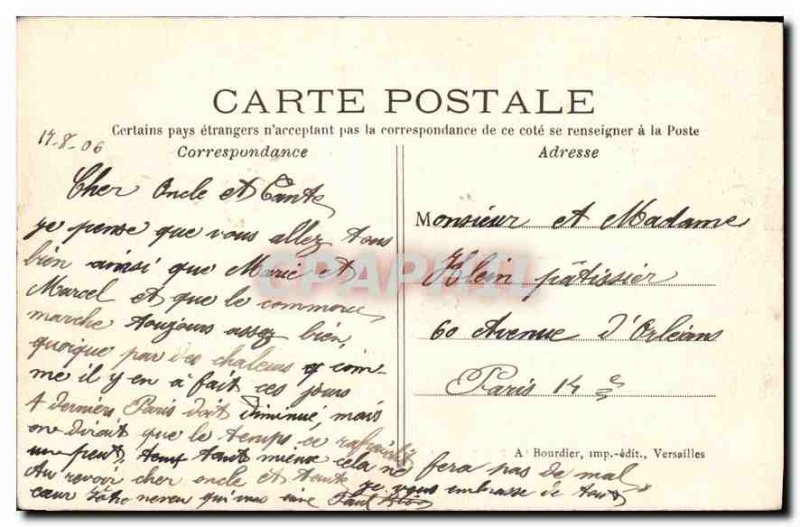 CARTE POSTALE
Certains pays étrangers n'acceptent pas la correspondance de ce coté se renseigner à la Poste
17-8-06
Correspondance
Cher Oncle et Tante
je pense que vous allez tous
bien ainsi que Marie et
Marcel et que le commerce
marche toujours assez bien,
quoique par des chaleurs com-
me il y en a fait ces jours
derniers Paris doit diminué, mais
on dirait que le temps ce rafraichi
un peut, tant mieux cela ne fera pas de mal
Au revoir cher oncle et tante je vous embrasse de tout
cœur Vôtre neveu qui vous aime Paul
Adresse
Monsieur et Madame
Klein pâtissier
60 Avenue d'Orléans
Paris 14e
A Bourdier, imp.-édit., Versailles
CPAPHIL